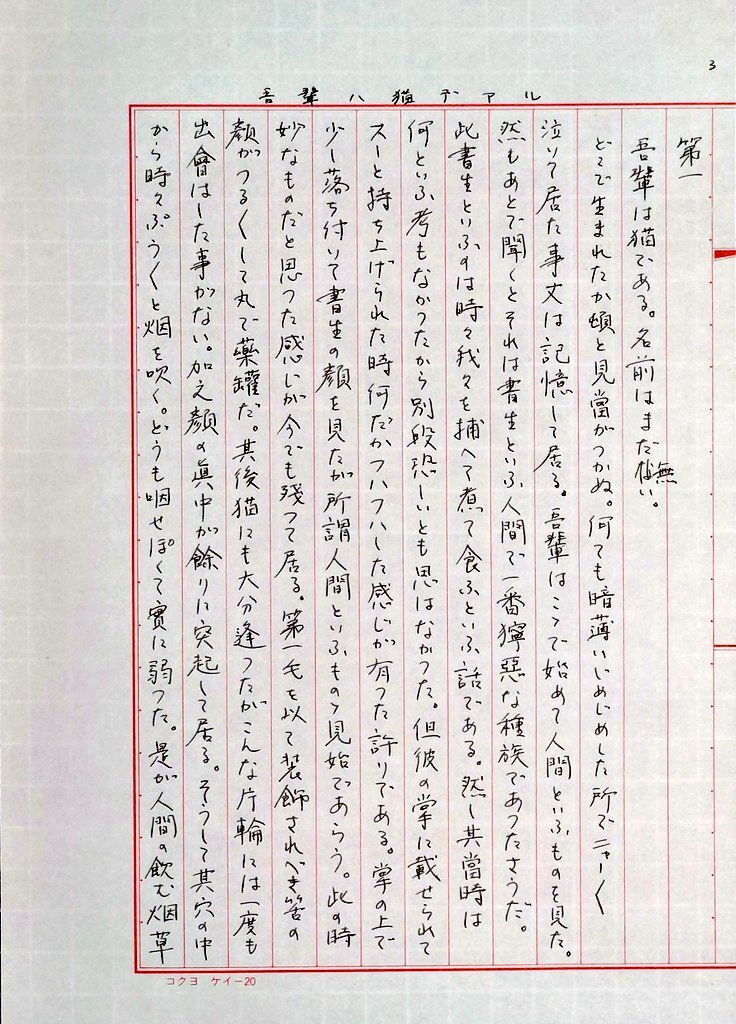 3
吾輩ハ猫デアル
第一
吾輩は猫である。名前はまだ無い。
どこで生まれたか頓と見當がつかぬ。何ても暗薄いじめじめした所でニャー〱
泣いて居た事丈は記憶して居る。吾輩はこゝで始めて人間といふものを見た。
然もあとで聞くとそれは書生といふ人間で一番獰惡な種族であつたさうだ。
此書生といふのは時々我々を捕へて煮て食ふといふ話である。然し其當時は
何といふ考もなかつたから別段恐しいとも思はなかつた。但彼の掌に載せられて
スーと持ち上げられた時何だかフハフハした感じが有つた許りである。掌の上で
少し落ち付いて書生の顔を見たが所謂人間といふものゝ見始であらう。此の時
妙なものだと思つた感じが今でも残つて居る。第一毛を以て装飾されべき筈の
顔がつる〱して丸で藥罐だ。其後猫にも大分逢つたがこんな片輪には一度も
出會はした事がない。加之顔の眞中が餘りに突起して居る。そうして其穴の中
から時々ぷう〱と烟を吹く。どうも咽せぽくて實に弱つた。是が人間の飲む烟草
コクヨ ケイー20